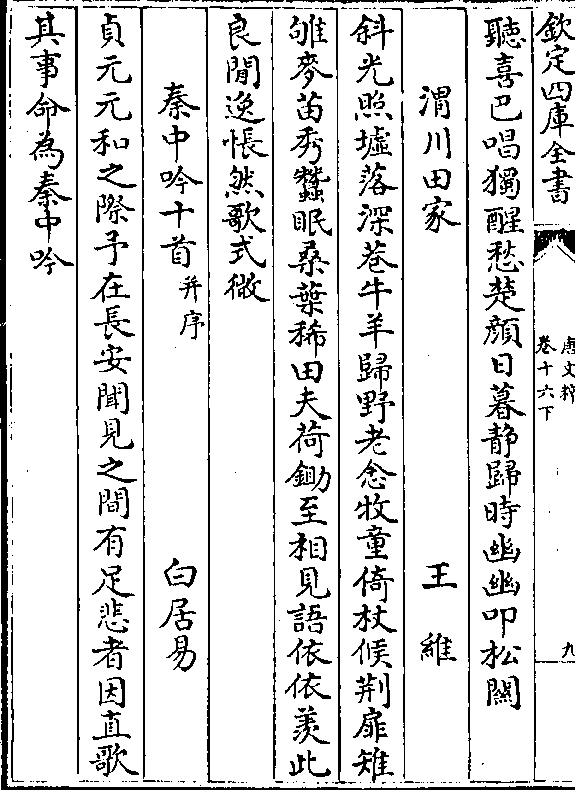 欽定四庫全書
唐文粹
卷十六下
九
聽喜巴唱獨醒愁楚顔日暮静歸時幽幽叩松關
渭川田家　王維
斜光照墟落深巷牛羊歸野老念牧童倚杖候荆扉雉
雊麥苗秀蠶眠桑葉稀田夫荷鋤至相見語依依羨此
良閒逸悵然歌式微
秦中吟十首并序　白居易
貞元元和之際予在長安聞見之間有足悲者因直歌
其事命為秦中吟